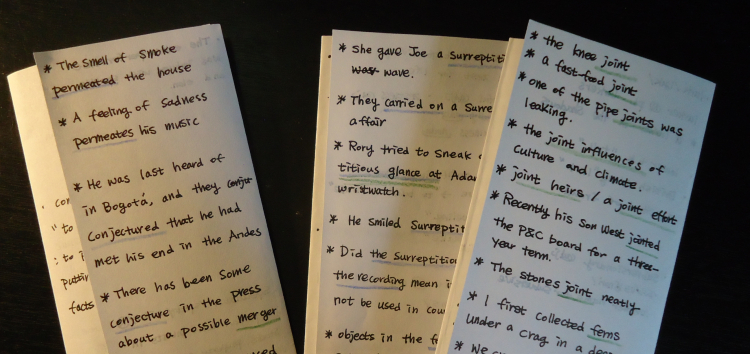 * The smell of smoke
permeated the house
* A feeling of sadness
permeates his music
* He was last heard of
in Bogotá, and they conjec-
conjectured that he had
met his end in the Andes
* There has been some
conjecture in the press
about a possible merger
"to
facts
* She gave Joe a surreptiti
way wave.
* They carried on a surre
affair
* Rory tried to sneak
titious glance at Ada
wristwatch.
* He smiled surreptit
* Did the surreptitio
the recording mean i
not be used in cou
* objects in the f
* the knee joint
* a fast-food joint
* one of the pipe joints was
leaking.
* the joint influences of
culture and climate.
* joint heirs / a joint effort
* Recently his son West jointed
the P&C board for a three-
year term.
* The stones joint neatly.
* I first collected ferns
under a crag in a dee
* We